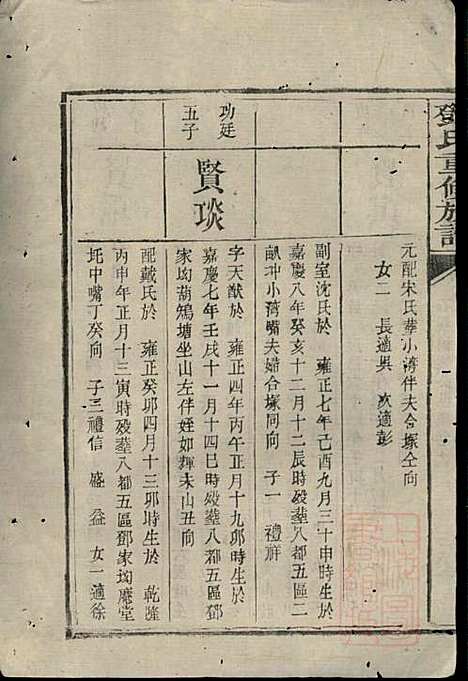 鄧氏重修族譜
元配宋氏葬小湾伴夫合塚仝向
女二 長適吳 次適彭
副室沈氏於 雍正七年己酉九月三十申時生於
嘉慶八年癸亥十二月十二辰時歿葬八都五區二
畝冲小湾嘴夫婦合塚同向 子一 禮祥
功廷
五子
賢琰
字天猷於 雍正四年丙午正月十九卯時生於
嘉慶七年壬戌十一月十四巳時歿葬八都五區鄧
家坳葫鴂塘坐山左伴姪如輝未山丑向
配戴氏於 雍正癸卯四月十三卯時生於 乾隆
丙申年正月十三寅時歿葬八都五區鄧家坳廳堂
坵中嘴丁癸向 子三禮信 盛 益 女一適徐